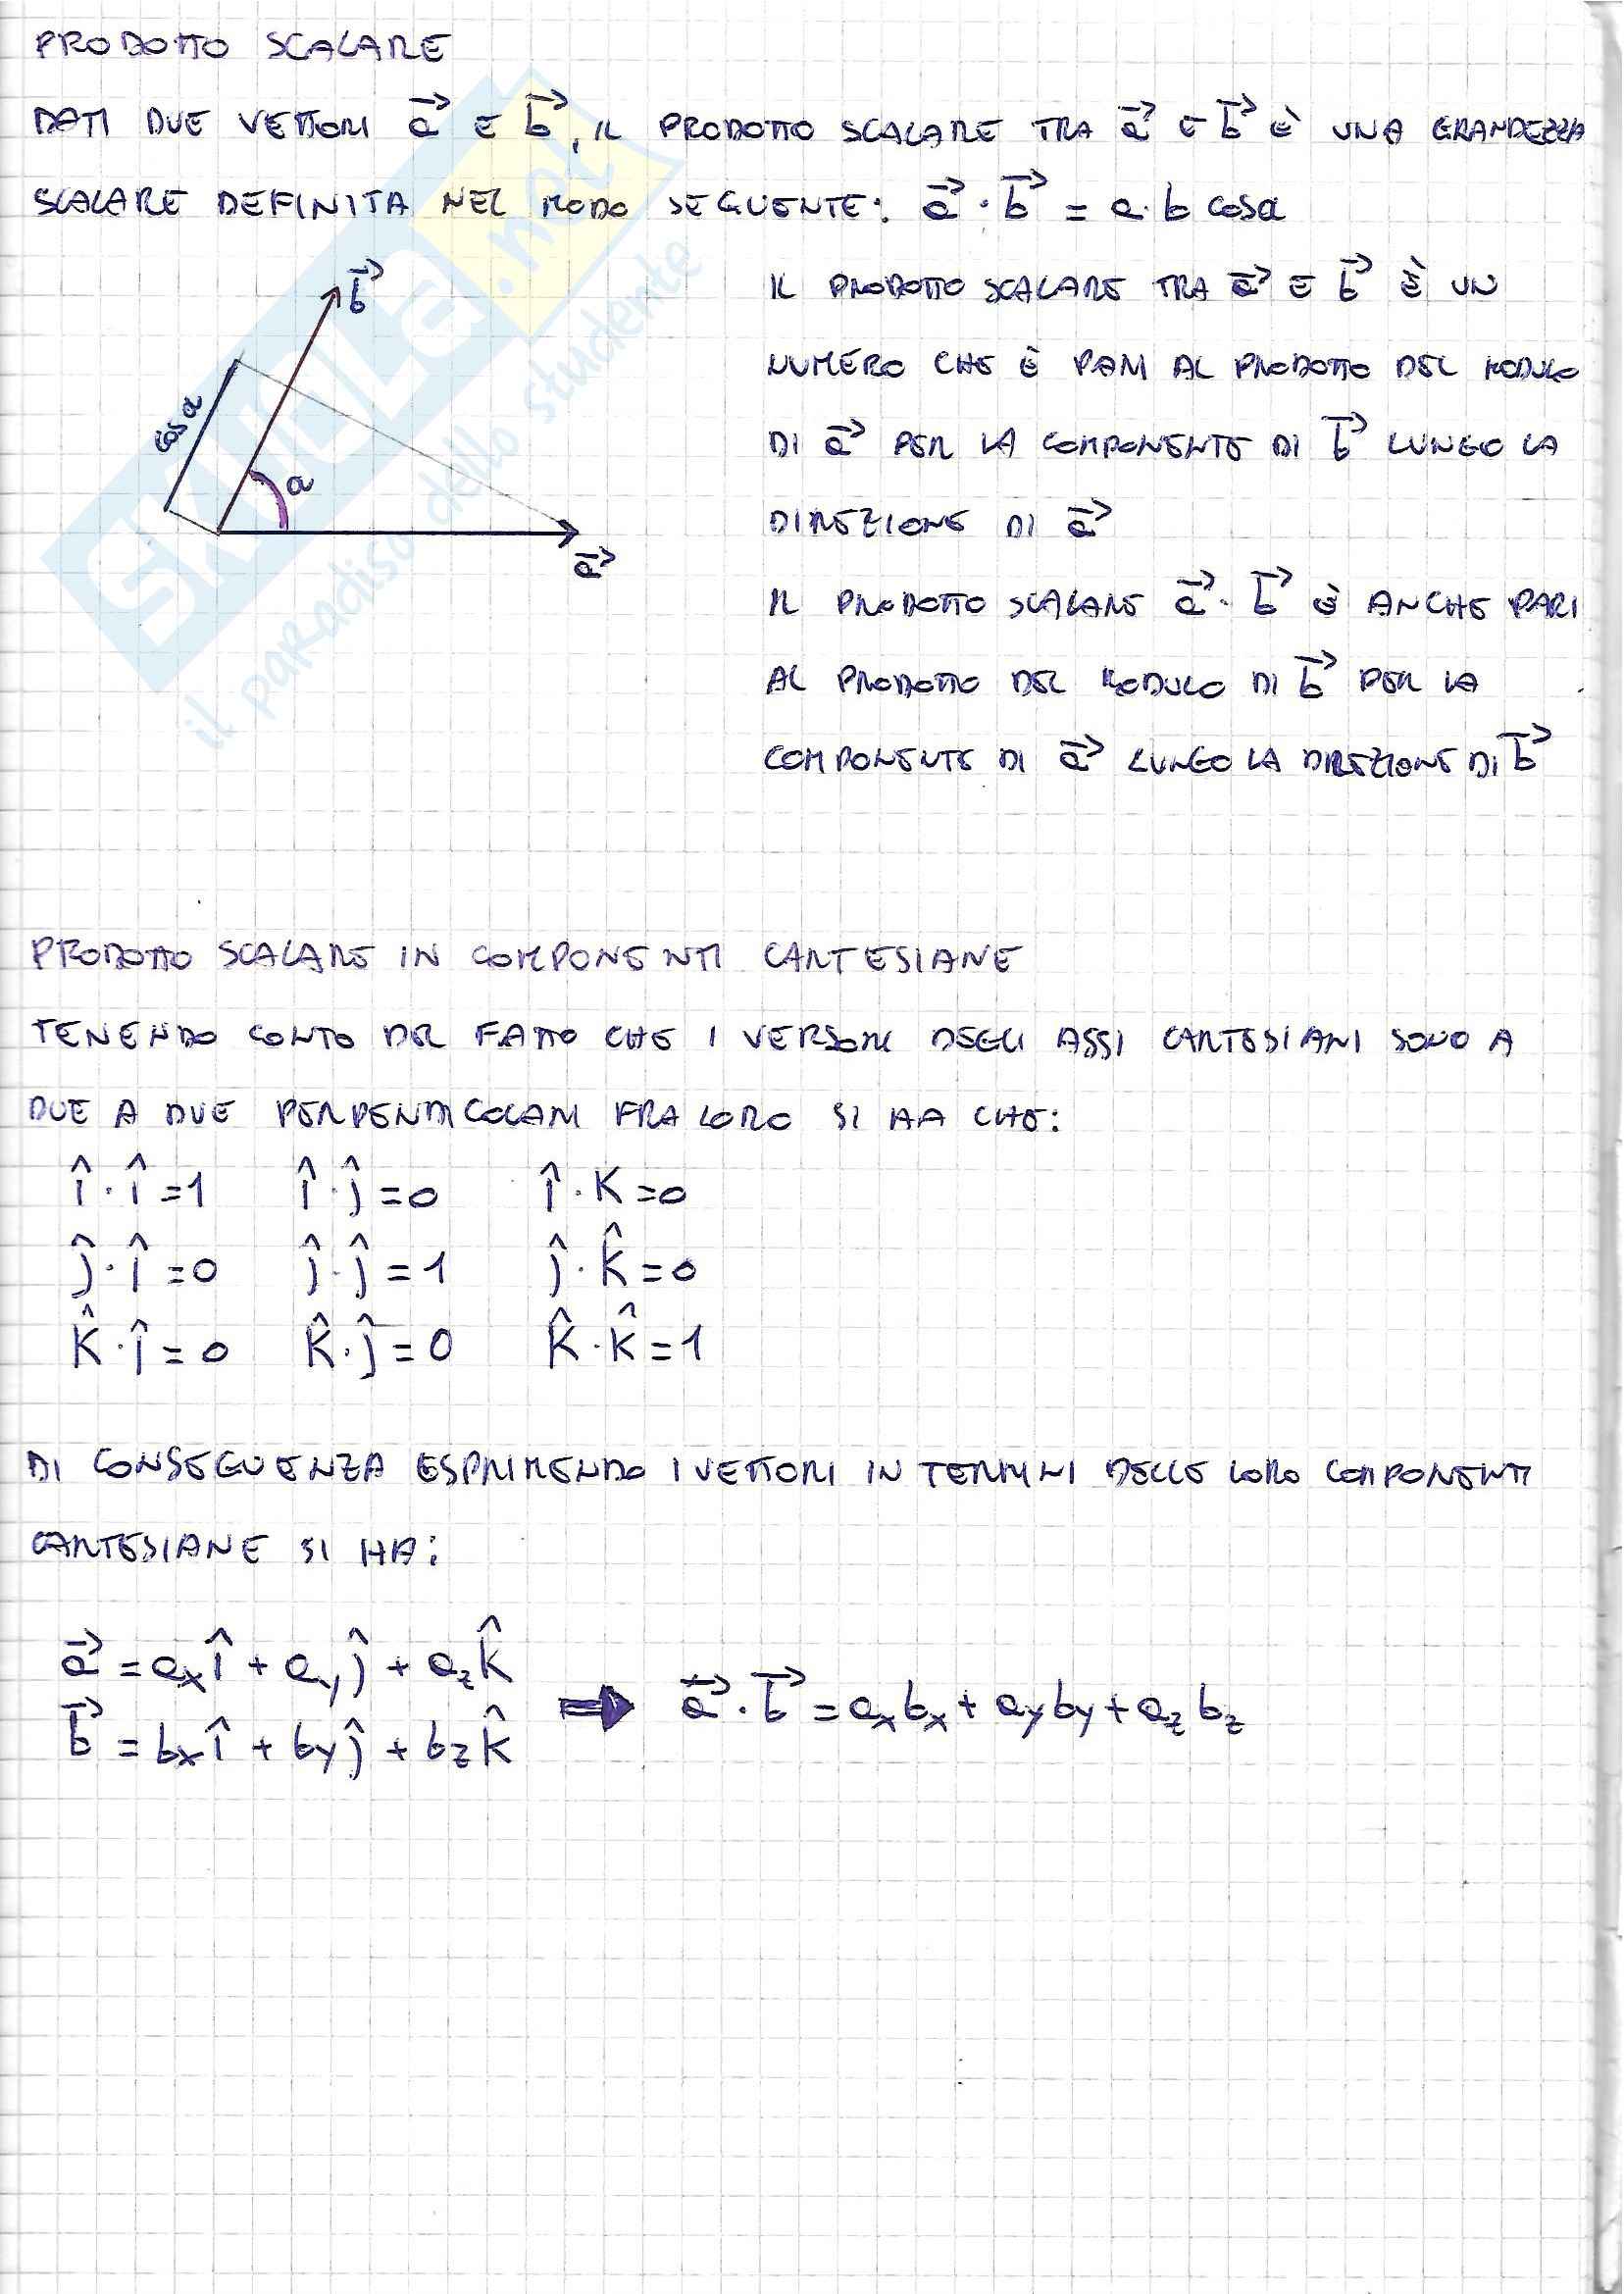 PRODOTTO SCALARE
DATI DUE VETTORI a⃗ E b⃗, IL PRODOTTO SCALARE TRA a⃗ E b⃗ È UNA GRANDEZZA
SCALARE DEFINITA NEL MODO SEGUENTE: a⃗ · b⃗ = a · b cosα
b⃗
cosα
α
a⃗
IL PRODOTTO SCALARE TRA a⃗ E b⃗ È UN
NUMERO CHE È PARI AL PRODOTTO DEL MODULO
DI a⃗ PER LA COMPONENTE DI b⃗ LUNGO LA
DIREZIONE DI a⃗
IL PRODOTTO SCALARE a⃗ · b⃗ È ANCHE PARI
AL PRODOTTO DEL MODULO DI b⃗ PER LA
COMPONENTE DI a⃗ LUNGO LA DIREZIONE DI b⃗
skuola.net
il paradiso dello studente
PRODOTTO SCALARE IN COMPONENTI CARTESIANE
TENENDO CONTO DEL FATTO CHE I VERSORI DEGLI ASSI CARTESIANI SONO A
DUE A DUE PERPENDICOLARI FRA LORO SI HA CHE:
î · î = 1 î · ĵ = 0 î · K = 0
ĵ · î = 0 ĵ · ĵ = 1 ĵ · K̂ = 0
K̂ · î = 0 K̂ · ĵ = 0 K̂ · K̂ = 1
DI CONSEGUENZA ESPRIMENDO I VETTORI IN TERMINI DELLE LORO COMPONENTI
CARTESIANE SI HA:
a⃗ = aₓ î + a_y ĵ + a_z K̂
b⃗ = bₓ î + b_y ĵ + b_z K̂
⇒ a⃗ · b⃗ = aₓ bₓ + a_y b_y + a_z b_z